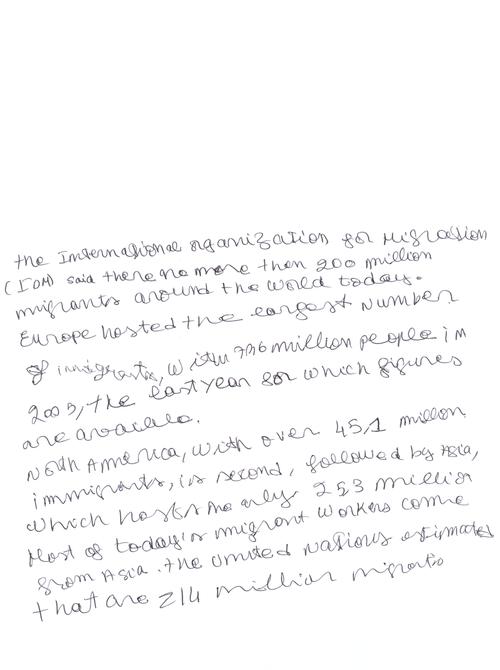 the International organization for Migration
(IOM) said there no more then 200 million
migrants around the world today.
Europe hosted the largest number
of immigrants, with 706 million people in
2005, the last year for which figures
are availale.
North America, with over 45,1 million
immigrants, is second, followed by Asia,
which hosts nearly 25,3 million
Most of today's migrant workers come
from Asia. the united nations estimated
that are 214 million migrants